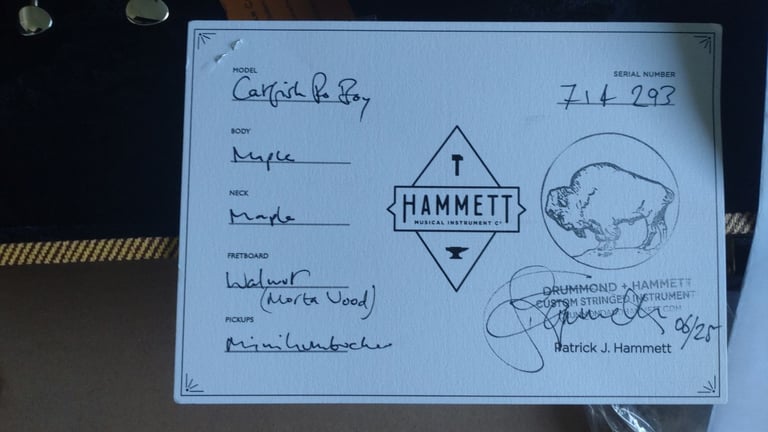 MODEL
Catfish Po Boy
SERIAL NUMBER
714 293
BODY
Maple
NECK
Maple
FRETBOARD
Walnut
(Morta Wood)
PICKUPS
Minihumbucker
HAMMETT
MUSICAL INSTRUMENT Cº
DRUMMOND + HAMMETT
CUSTOM STRINGED INSTRUMENT
06/25
Patrick J. Hammett